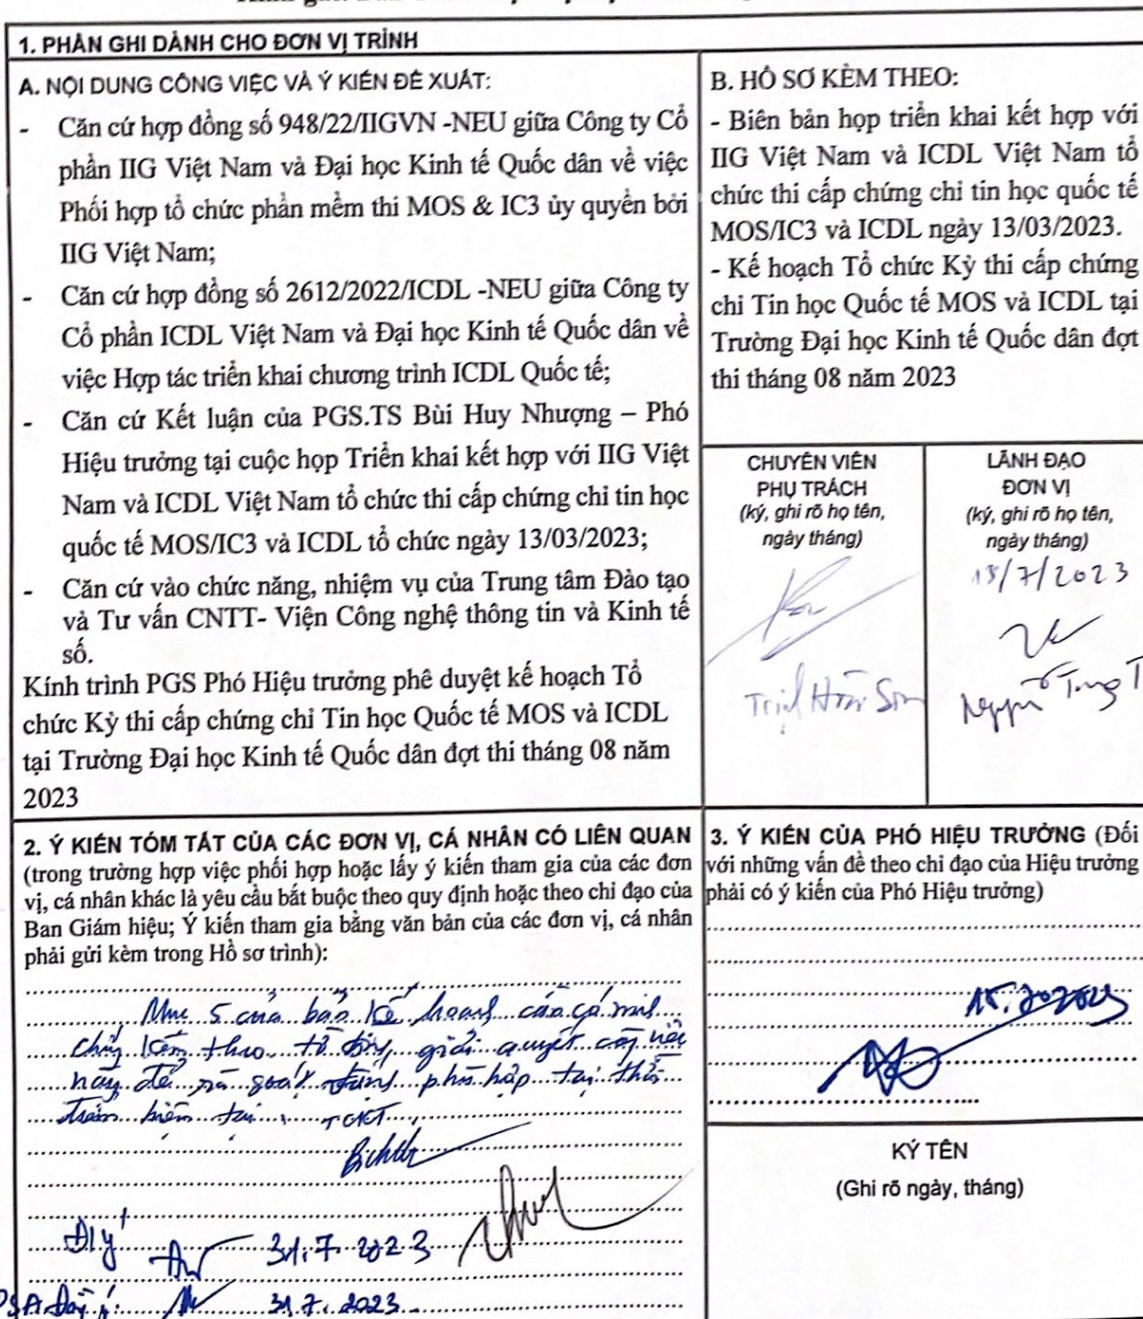 1. PHẦN GHI DÀNH CHO ĐƠN VỊ TRÌNH
A. NỘI DUNG CÔNG VIỆC VÀ Ý KIẾN ĐỀ XUẤT:
- Căn cứ hợp đồng số 948/22/IIGVN -NEU giữa Công ty Cổ
phần IIG Việt Nam và Đại học Kinh tế Quốc dân về việc
Phối hợp tổ chức phần mềm thi MOS & IC3 ủy quyền bởi
IIG Việt Nam;
- Căn cứ hợp đồng số 2612/2022/ICDL -NEU giữa Công ty
Cổ phần ICDL Việt Nam và Đại học Kinh tế Quốc dân về
việc Hợp tác triển khai chương trình ICDL Quốc tế;
- Căn cứ Kết luận của PGS.TS Bùi Huy Nhượng – Phó
Hiệu trưởng tại cuộc họp Triển khai kết hợp với IIG Việt
Nam và ICDL Việt Nam tổ chức thi cấp chứng chỉ tin học
quốc tế MOS/IC3 và ICDL tổ chức ngày 13/03/2023;
- Căn cứ vào chức năng, nhiệm vụ của Trung tâm Đào tạo
và Tư vấn CNTT- Viện Công nghệ thông tin và Kinh tế
số.
Kính trình PGS Phó Hiệu trưởng phê duyệt kế hoạch Tổ
chức Kỳ thi cấp chứng chỉ Tin học Quốc tế MOS và ICDL
tại Trường Đại học Kinh tế Quốc dân đợt thi tháng 08 năm
2023
B. HỒ SƠ KÈM THEO:
- Biên bản họp triển khai kết hợp với
IIG Việt Nam và ICDL Việt Nam tổ
chức thi cấp chứng chỉ tin học quốc tế
MOS/IC3 và ICDL ngày 13/03/2023.
- Kế hoạch Tổ chức Kỳ thi cấp chứng
chỉ Tin học Quốc tế MOS và ICDL tại
Trường Đại học Kinh tế Quốc dân đợt
thi tháng 08 năm 2023
CHUYÊN VIÊN
PHỤ TRÁCH
(ký, ghi rõ họ tên,
ngày tháng)
LÃNH ĐẠO
ĐƠN VỊ
(ký, ghi rõ họ tên,
ngày tháng)
/7/2023
2. Ý KIẾN TÓM TẮT CỦA CÁC ĐƠN VỊ, CÁ NHÂN CÓ LIÊN QUAN
(trong trường hợp việc phối hợp hoặc lấy ý kiến tham gia của các đơn
vị, cá nhân khác là yêu cầu bắt buộc theo quy định hoặc theo chỉ đạo của
Ban Giám hiệu; Ý kiến tham gia bằng văn bản của các đơn vị, cá nhân
phải gửi kèm trong Hồ sơ trình):
Mục 5 của bản kế hoạch cần có
theo giải quyết
này để rà soát phù hợp tại thời
điểm hiện tại
31.7.2023
31.7.2023
3. Ý KIẾN CỦA PHÓ HIỆU TRƯỞNG (Đối
với những vấn đề theo chỉ đạo của Hiệu trưởng
phải có ý kiến của Phó Hiệu trưởng)
KÝ TÊN
(Ghi rõ ngày, tháng)